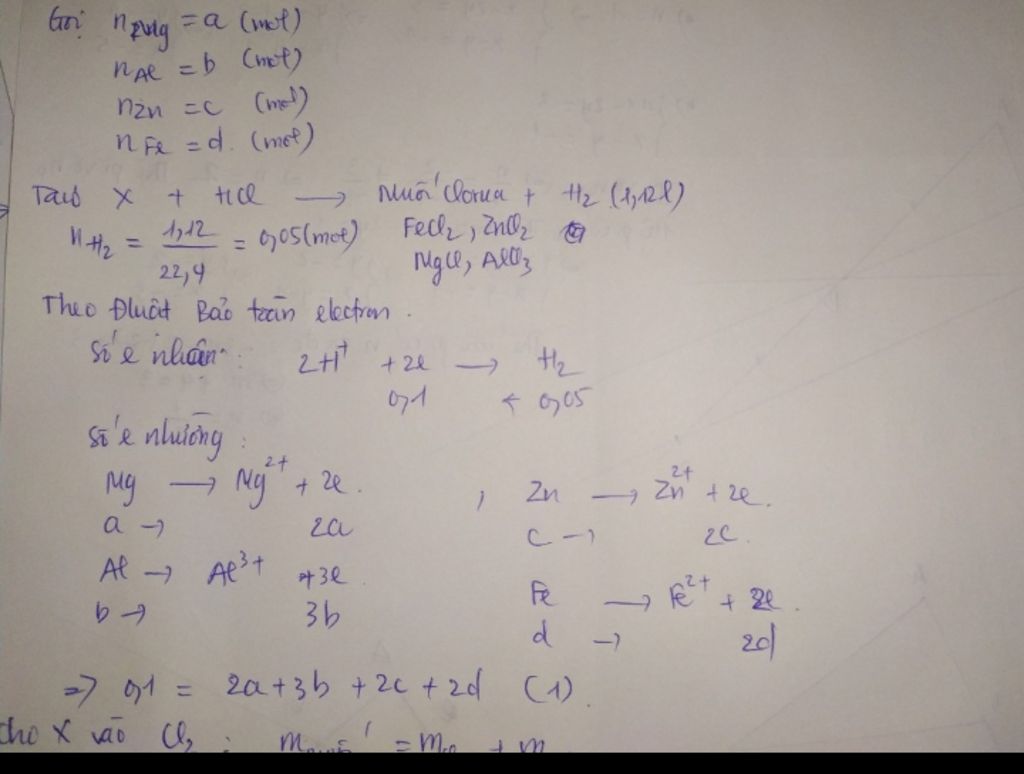 Gọi nMg = a (mol)
nAl = b (mol)
nZn = c (mol)
nFe = d. (mol)
X + HCl → Muối Clorua + H₂ (1,12l)
nH₂ = 1,12/22,4 = 0,05(mol) FeCl₂, ZnCl₂
MgCl, AlCl₃
Theo Đluật Bảo toàn electron.
Số e nhận: 2H⁺ + 2e → H₂
0,1 ← 0,05
Số e nhường:
Mg → Mg²⁺ + 2e. ; Zn → Zn²⁺ + 2e.
a → 2a c → 2c.
Al → Al³⁺ + 3e. Fe → Fe²⁺ + 2e.
b → 3b d → 2d
=> 0,1 = 2a+3b+2c+2d (1).
cho X vào Cl₂ : m = m + m